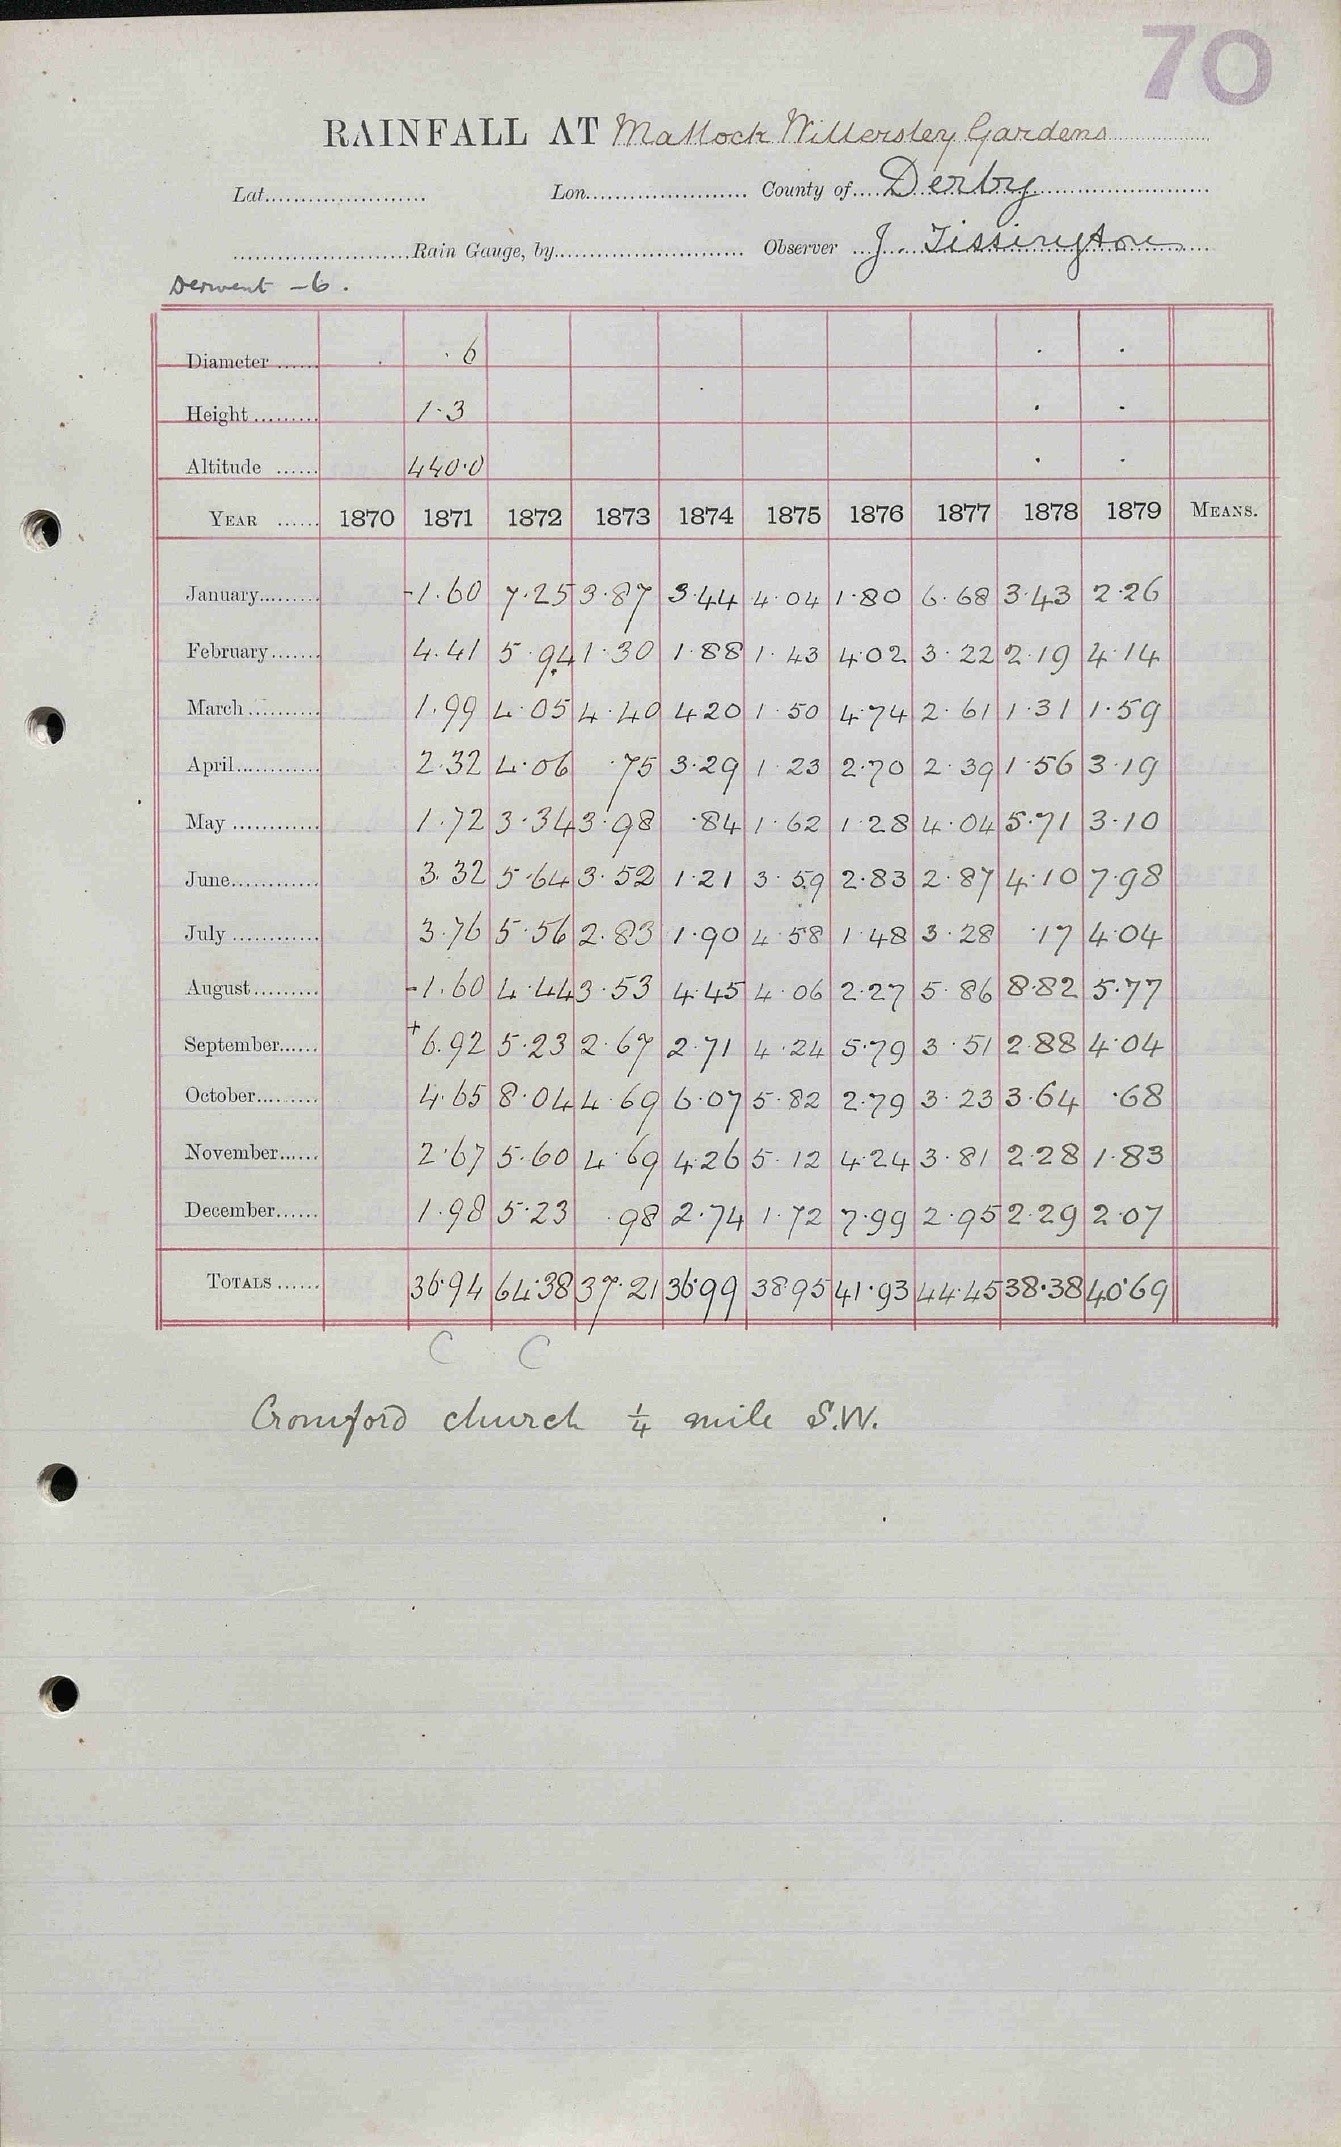 70
RAINFALL AT Matlock Willersley Gardens
Lat...................... Lon...................... County of.... Derby
......................Rain Gauge, by...................... Observer ... J. Tissington
Derwent -6.
Diameter ...... 6
Height......... 1.3
Altitude ...... 440.0
YEAR ...... 1870 1871 1872 1873 1874 1875 1876 1877 1878 1879 MEANS.
January......... -1.60 7.25 3.87 3.44 4.04 1.80 6.68 3.43 2.26
February....... 4.41 5.94 1.30 1.88 1.43 4.02 3.22 2.19 4.14
March.......... 1.99 4.05 4.40 4.20 1.50 4.74 2.61 1.31 1.59
April............ 2.32 4.06 .75 3.29 1.23 2.70 2.39 1.56 3.19
May ............ 1.72 3.34 3.98 .84 1.62 1.28 4.04 5.71 3.10
June............ 3.32 5.64 3.52 1.21 3.59 2.83 2.87 4.10 7.98
July ............ 3.76 5.56 2.83 1.90 4.58 1.48 3.28 .17 4.04
August......... -1.60 4.44 3.53 4.45 4.06 2.27 5.86 8.82 5.77
September...... +6.92 5.23 2.67 2.71 4.24 5.79 3.51 2.88 4.04
October......... 4.65 8.04 4.69 6.07 5.82 2.79 3.23 3.64 .68
November...... 2.67 5.60 4.69 4.26 5.12 4.24 3.81 2.28 1.83
December...... 1.98 5.23 .98 2.74 1.72 7.99 2.95 2.29 2.07
TOTALS ...... 36.94 64.38 37.21 36.99 38.95 41.93 44.45 38.38 40.69
C C
Cromford church ¼ mile S.W.